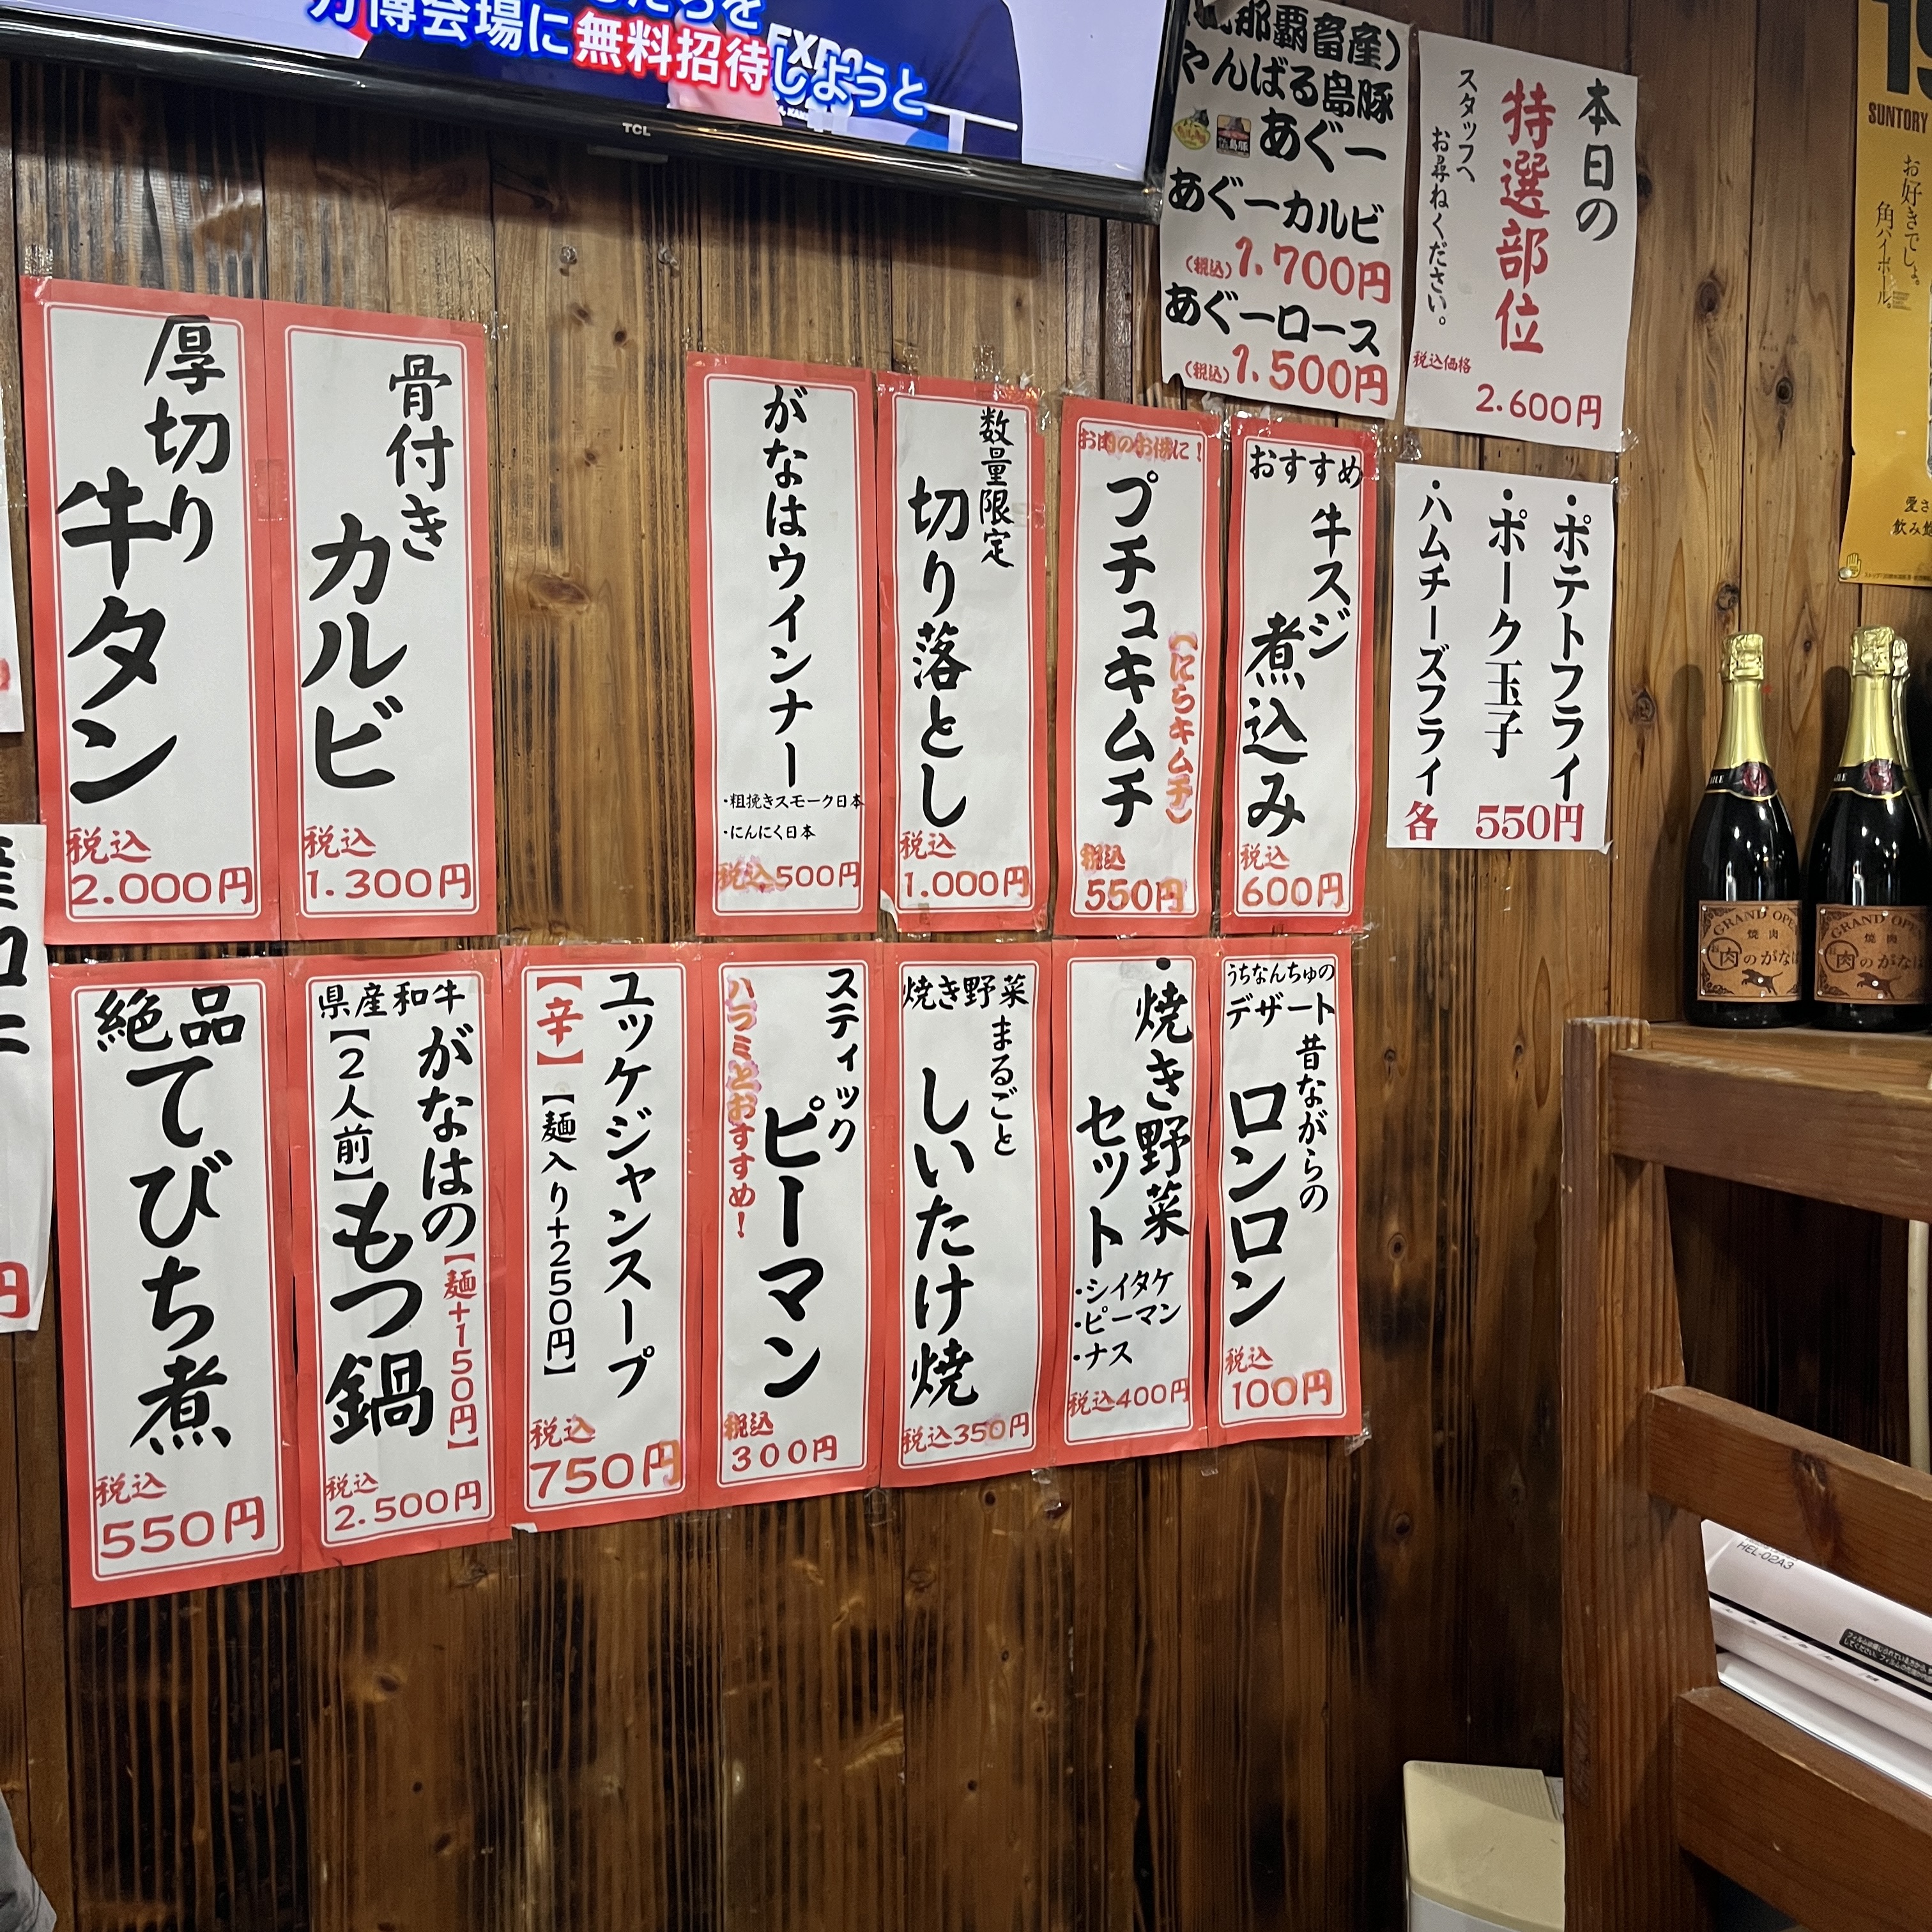 万博会場に無料招待しようと
EXPO
TCL
那覇畜産)
やんばる島豚
あぐー
あぐーカルビ
(税込)1.700円
あぐーロース
(税込)1.500円
本日の
特選部位
スタッフへ
お尋ねください。
税込価格
2.600円
SUNTORY
お好きでしょ。
角ハイボール。
厚切り
牛タン
税込
2.000円
骨付き
カルビ
税込
1.300円
がなはウインナー
・粗挽きスモーク日本
・にんにく日本
税込500円
数量限定
切り落とし
税込
1.000円
お肉のお供に!
プチュキムチ
(にらキムチ)
税込
550円
おすすめ
牛スジ
煮込み
税込
600円
・ポテトフライ
・ポーク玉子
・ハムチーズフライ
各 550円
絶品
てびち煮
税込
550円
県産和牛
がなはの
もつ鍋
【2人前】
【麺+150円】
税込
2.500円
ユッケジャンスープ
【辛】
【麺入り+250円】
税込
750円
スティック
ピーマン
ハラミとおすすめ!
税込
300円
焼き野菜
まるごと
しいたけ焼
税込350円
・焼き野菜
セット
・シイタケ
・ピーマン
・ナス
税込400円
うちなんちゅの
デザート
昔ながらの
ロンロン
税込
100円
GRAND OPE
焼肉
肉のがなは
GRAND OPE
焼肉
肉のがな
HEL-02A3